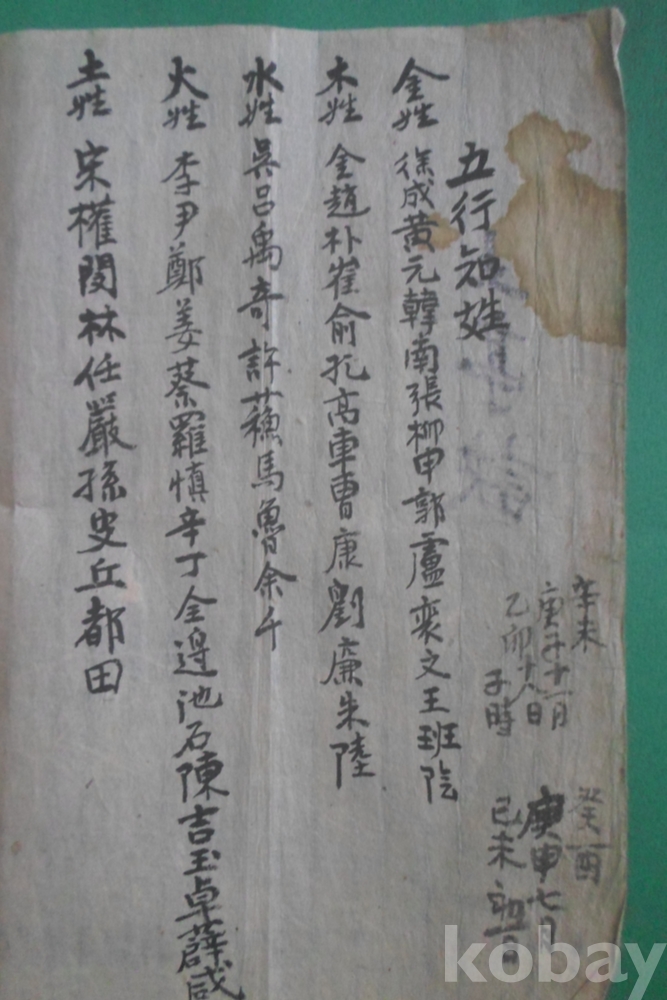 辛未
庚子十一月
乙卯十八日
子時
癸酉
庚申七月
己未初五日
五行知姓
金姓 徐成黃元韓南張柳申郭盧裵文王班陰
木姓 金趙朴崔俞孔高車曺康劉廉朱陸
水姓 吳呂禹奇許蘇馬魯余千
火姓 李尹鄭姜蔡羅愼辛丁全邊池石陳吉玉卓薛咸
土姓 宋權閔林任嚴孫史丘都田
kobay